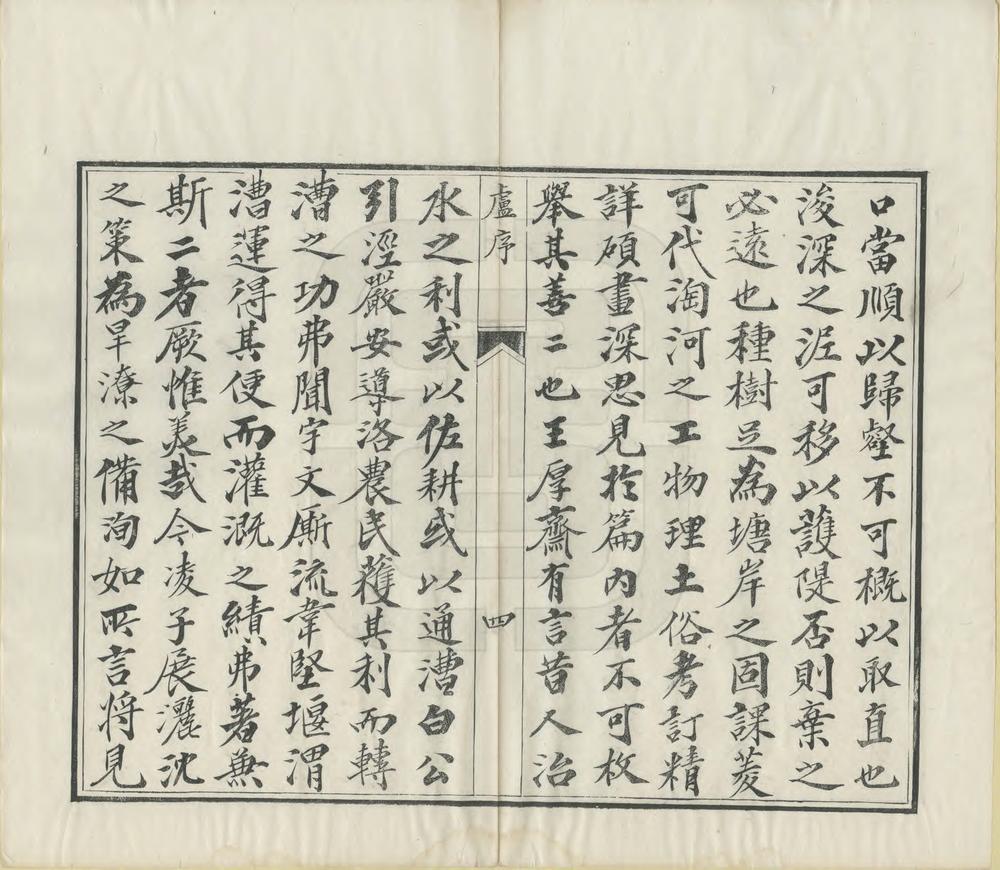 口當順以歸壑不可概以取直也
浚深之泥可移以護隄否則棄之
必遠也種樹足為塘岸之固課菱
可代淘河之工物理土俗考訂精
詳碩畫深思見於篇內者不可枚
舉其善二也王厚齋有言昔人治
盧序
四
水之利或以佐耕或以通漕白公
引涇嚴安導洛農民蒦其利而轉
漕之功弗聞宇文厮流韋堅堰渭
漕運得其便而灌溉之績弗著兼
斯二者厥惟美哉今凌子展灑沈
之策為旱潦之備洵如所言將見